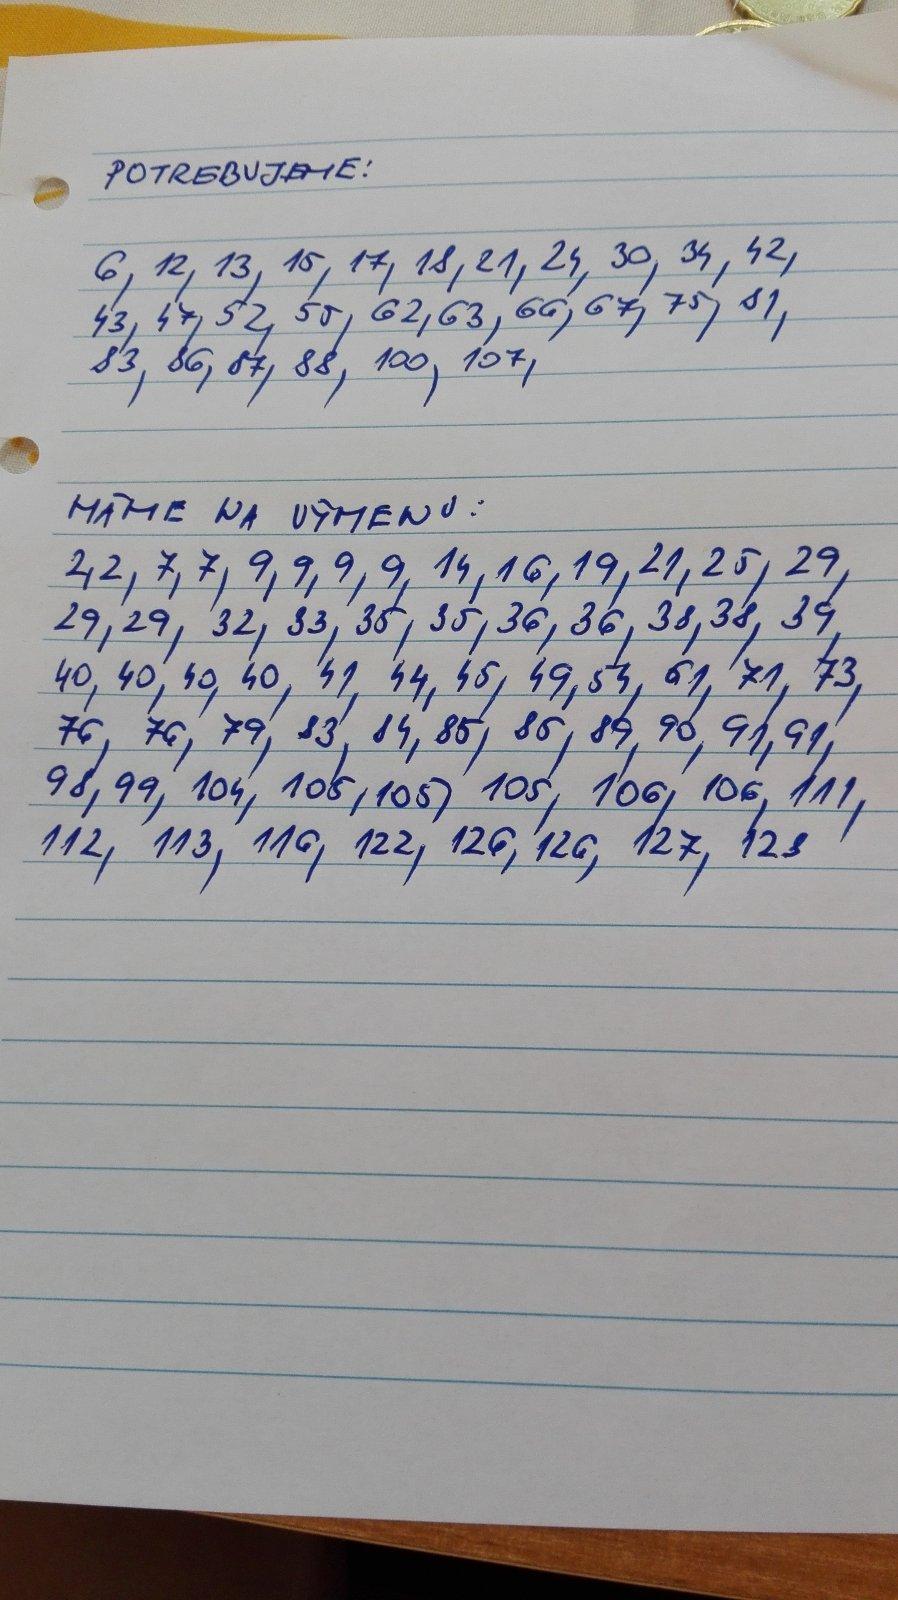 POTREBUJEME:
6, 12, 13, 15, 17, 18, 21, 24, 30, 34, 42,
43, 47, 52, 55, 62, 63, 66, 67, 75, 81,
83, 86, 87, 88, 100, 107,
MÁME NA VÝMENU:
2, 2, 7, 7, 9, 9, 9, 9, 14, 16, 19, 21, 25, 29,
29, 29, 32, 33, 35, 35, 36, 36, 38, 38, 39,
40, 40, 40, 40, 41, 44, 45, 49, 54, 61, 71, 73,
76, 76, 79, 83, 84, 85, 86, 89, 90, 91, 91,
98, 99, 104, 105, 105, 105, 106, 106, 111,
112, 113, 116, 122, 126, 126, 127, 128